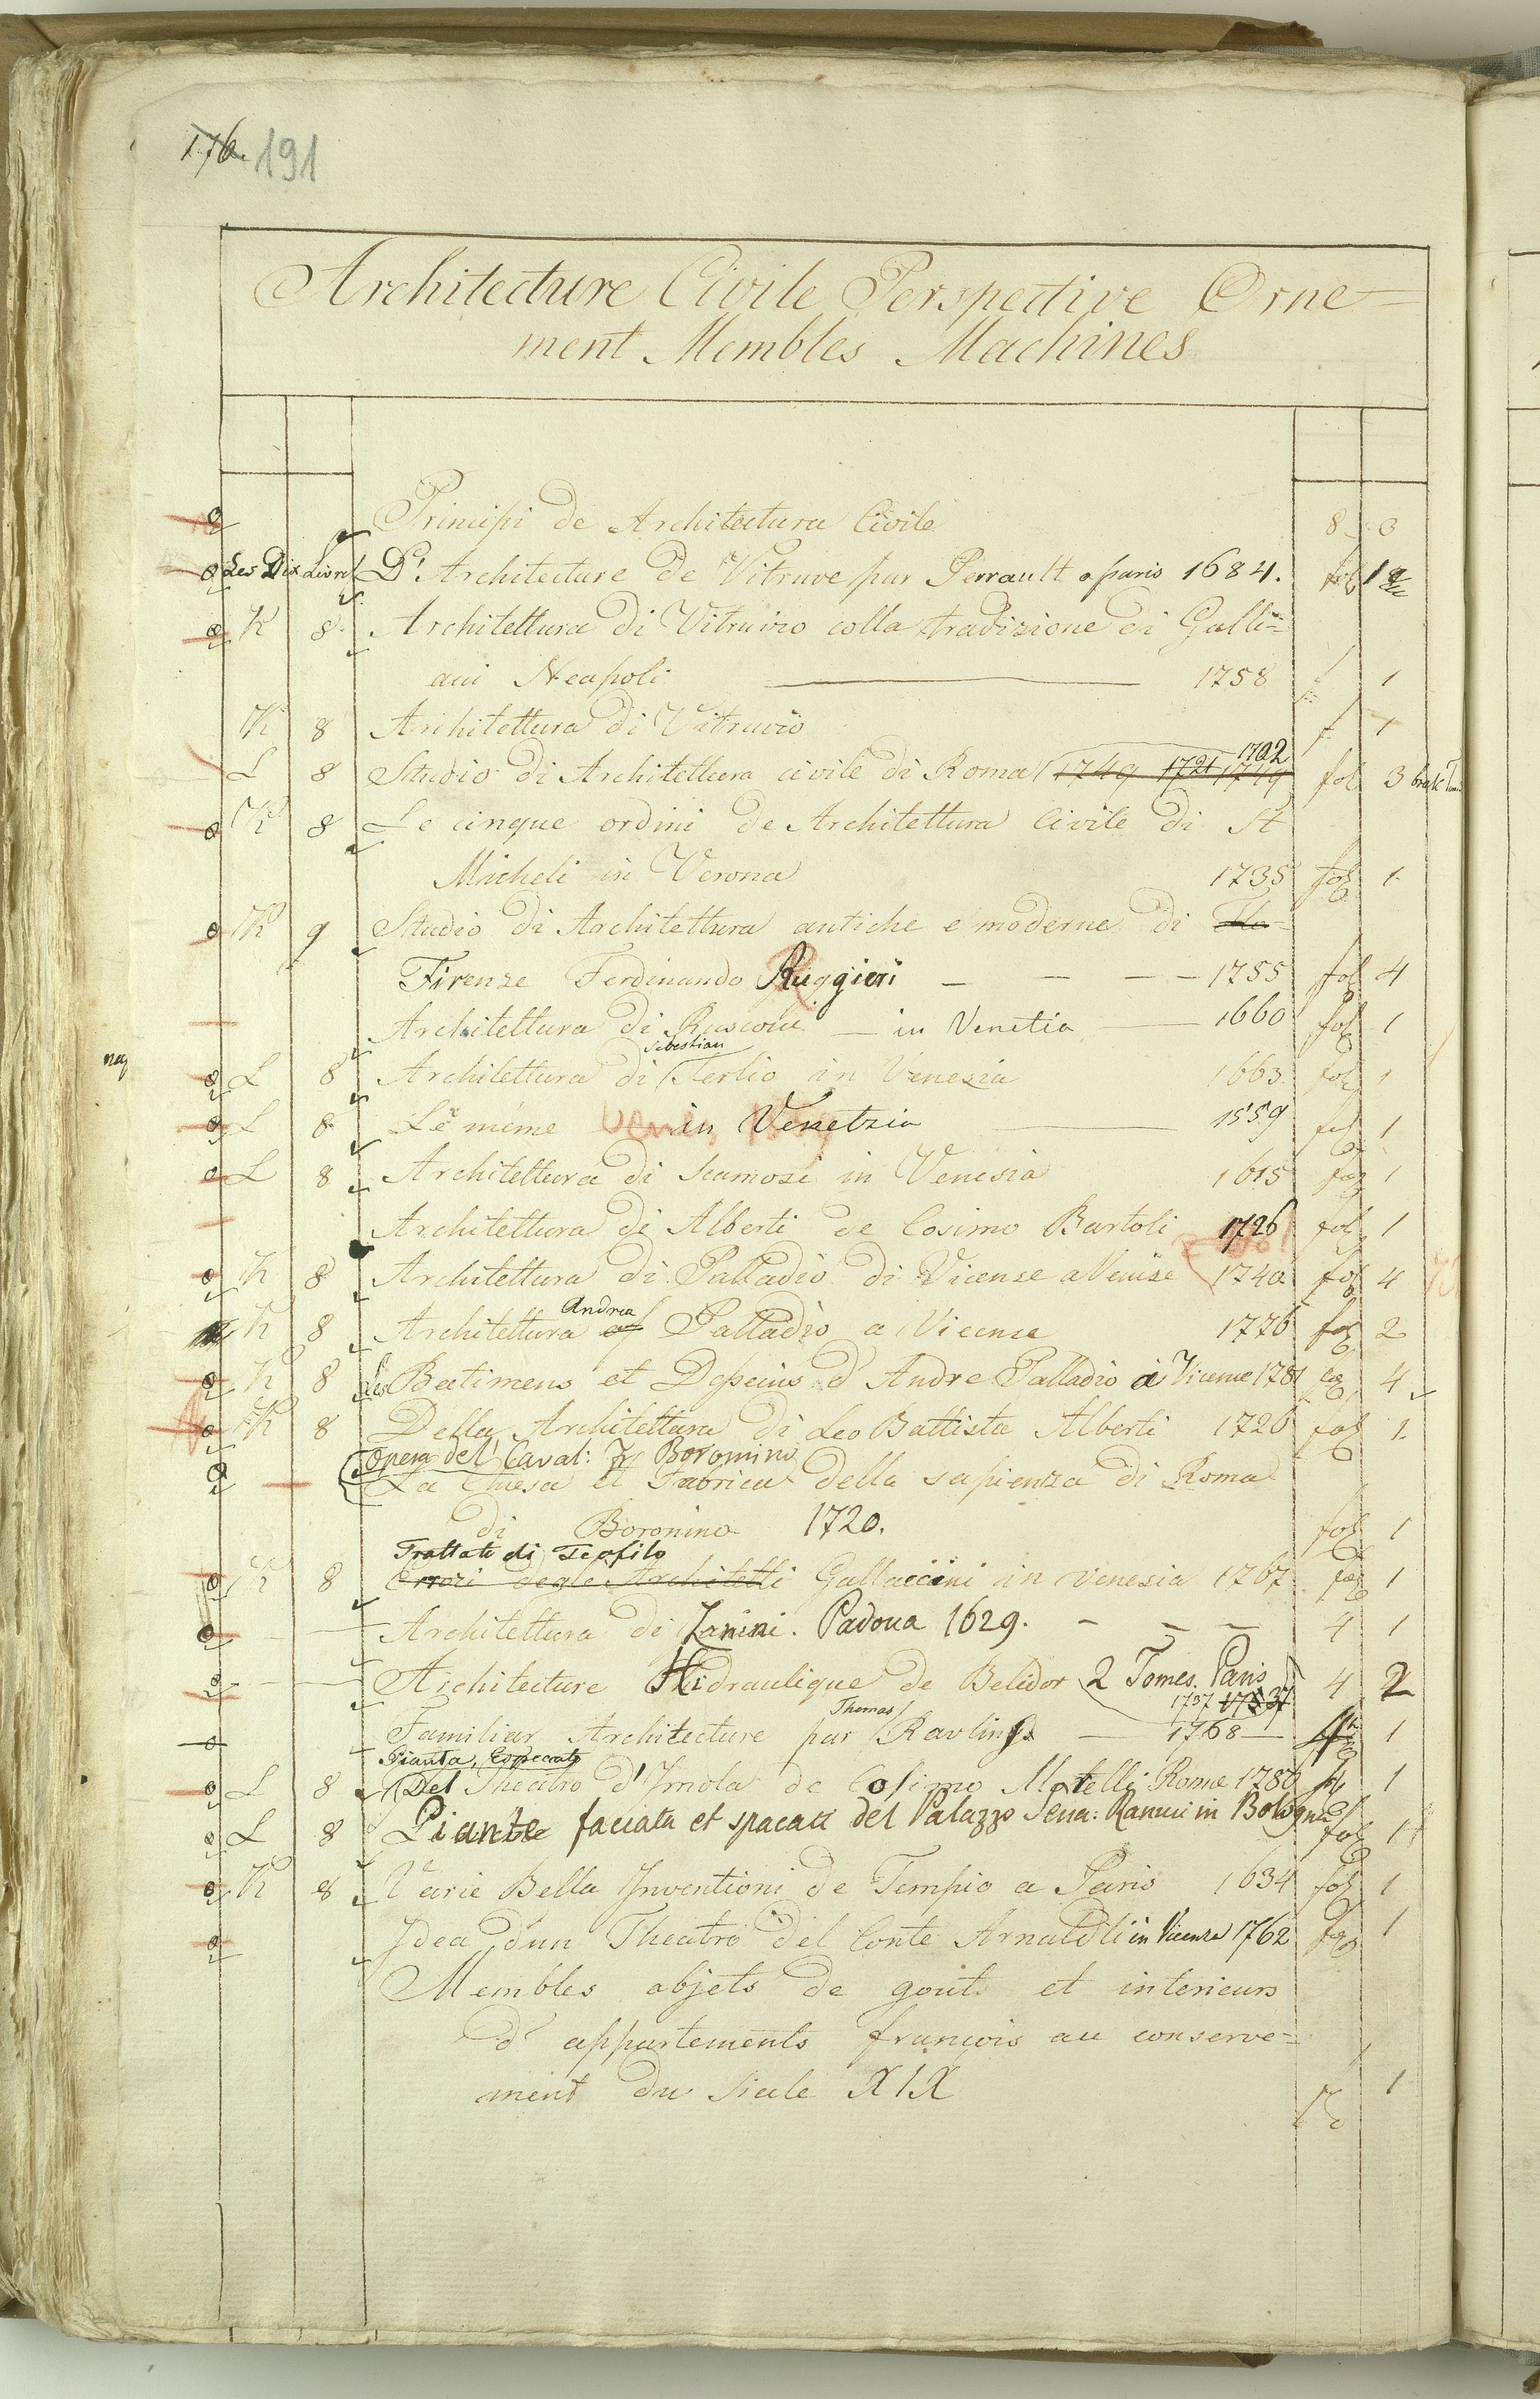 176. 191
Architecture Civile Perspective Orne=
ment Membles Machines
Principi de Architectura Civile 8 3
Les Dix Livres D'Architecture de Vitruve par Perrault a paris 1684. fol 1
K 8 Architettura di Vitruvio colla tradizione di Galli=
ani Neapoli 1758 f 1
K 8 Architettura di Vitruvio f 1
1702
L 8 Studio di Architettura civile di Roma 1749 1721 1749 fol 3
K 8 Le cinque ordini de Architettura Civile di St
Micheli in Verona 1735 fol 1
K 9 Studio di Architettura antiche e moderne di Flo-
Firenze Ferdinando Ruggieri — — — 1755 fol 4
Architettura di Rusconi — in Venetia — 1660 fol 1
Sebastian
neq L 8 Architettura di Serlio in Venezia 1663 fol 1
L 8 Le même in Venetzia 1559 fol 1
L 8 Architettura di Scamosi in Venesia 1615 fol 1
Architettura di Alberti de Cosimo Bartoli 1726 fol 1
K 8 Architettura di Palladio di Vicense a Venise 1740 fol 4
Andrea
K 8 Architettura of Palladio a Vicense 1776 fol 2
K 8 Les Batimens et Desseins d'Andre Palladio à Vicense 1781 fol 4
K 8 Della Architettura di Leo Battista Alberti 1726 fol 1
Opera del' Caval: Fr Boromino
La Chiesa et Fabrica della sapienza di Roma
di Boronino 1720. fol 1
Trattato di Teofilo
K 8 Errori degle Architetti Gallaccini in venesia 1767 fol 1
Architettura di Zanini. Padoua 1629. - - - 4 1
Architecture Hidraulique de Belidor 2 Tomes. Paris 4 2
1737
Thomas
Familiar Architecture par Ravlings — 1768 — 1
Pianta, Espaccato
L 8 Del Theatro d'Imola de Cosimo Morelli Rome 1780 fol 1
L 8 Piante faciata et spacati del Palazzo Sena: Ranuci in Bologna fol 1
K 8 Varie Bella Inventioni de Tempio a Paris 1634 fol 1
Idea d'un Theatro del Conte Arnaldi in Vicenza 1762 fol 1
Membles objets de gout et interieurs
d'appartements françois au conserve=
ment du Siecle XIX 1